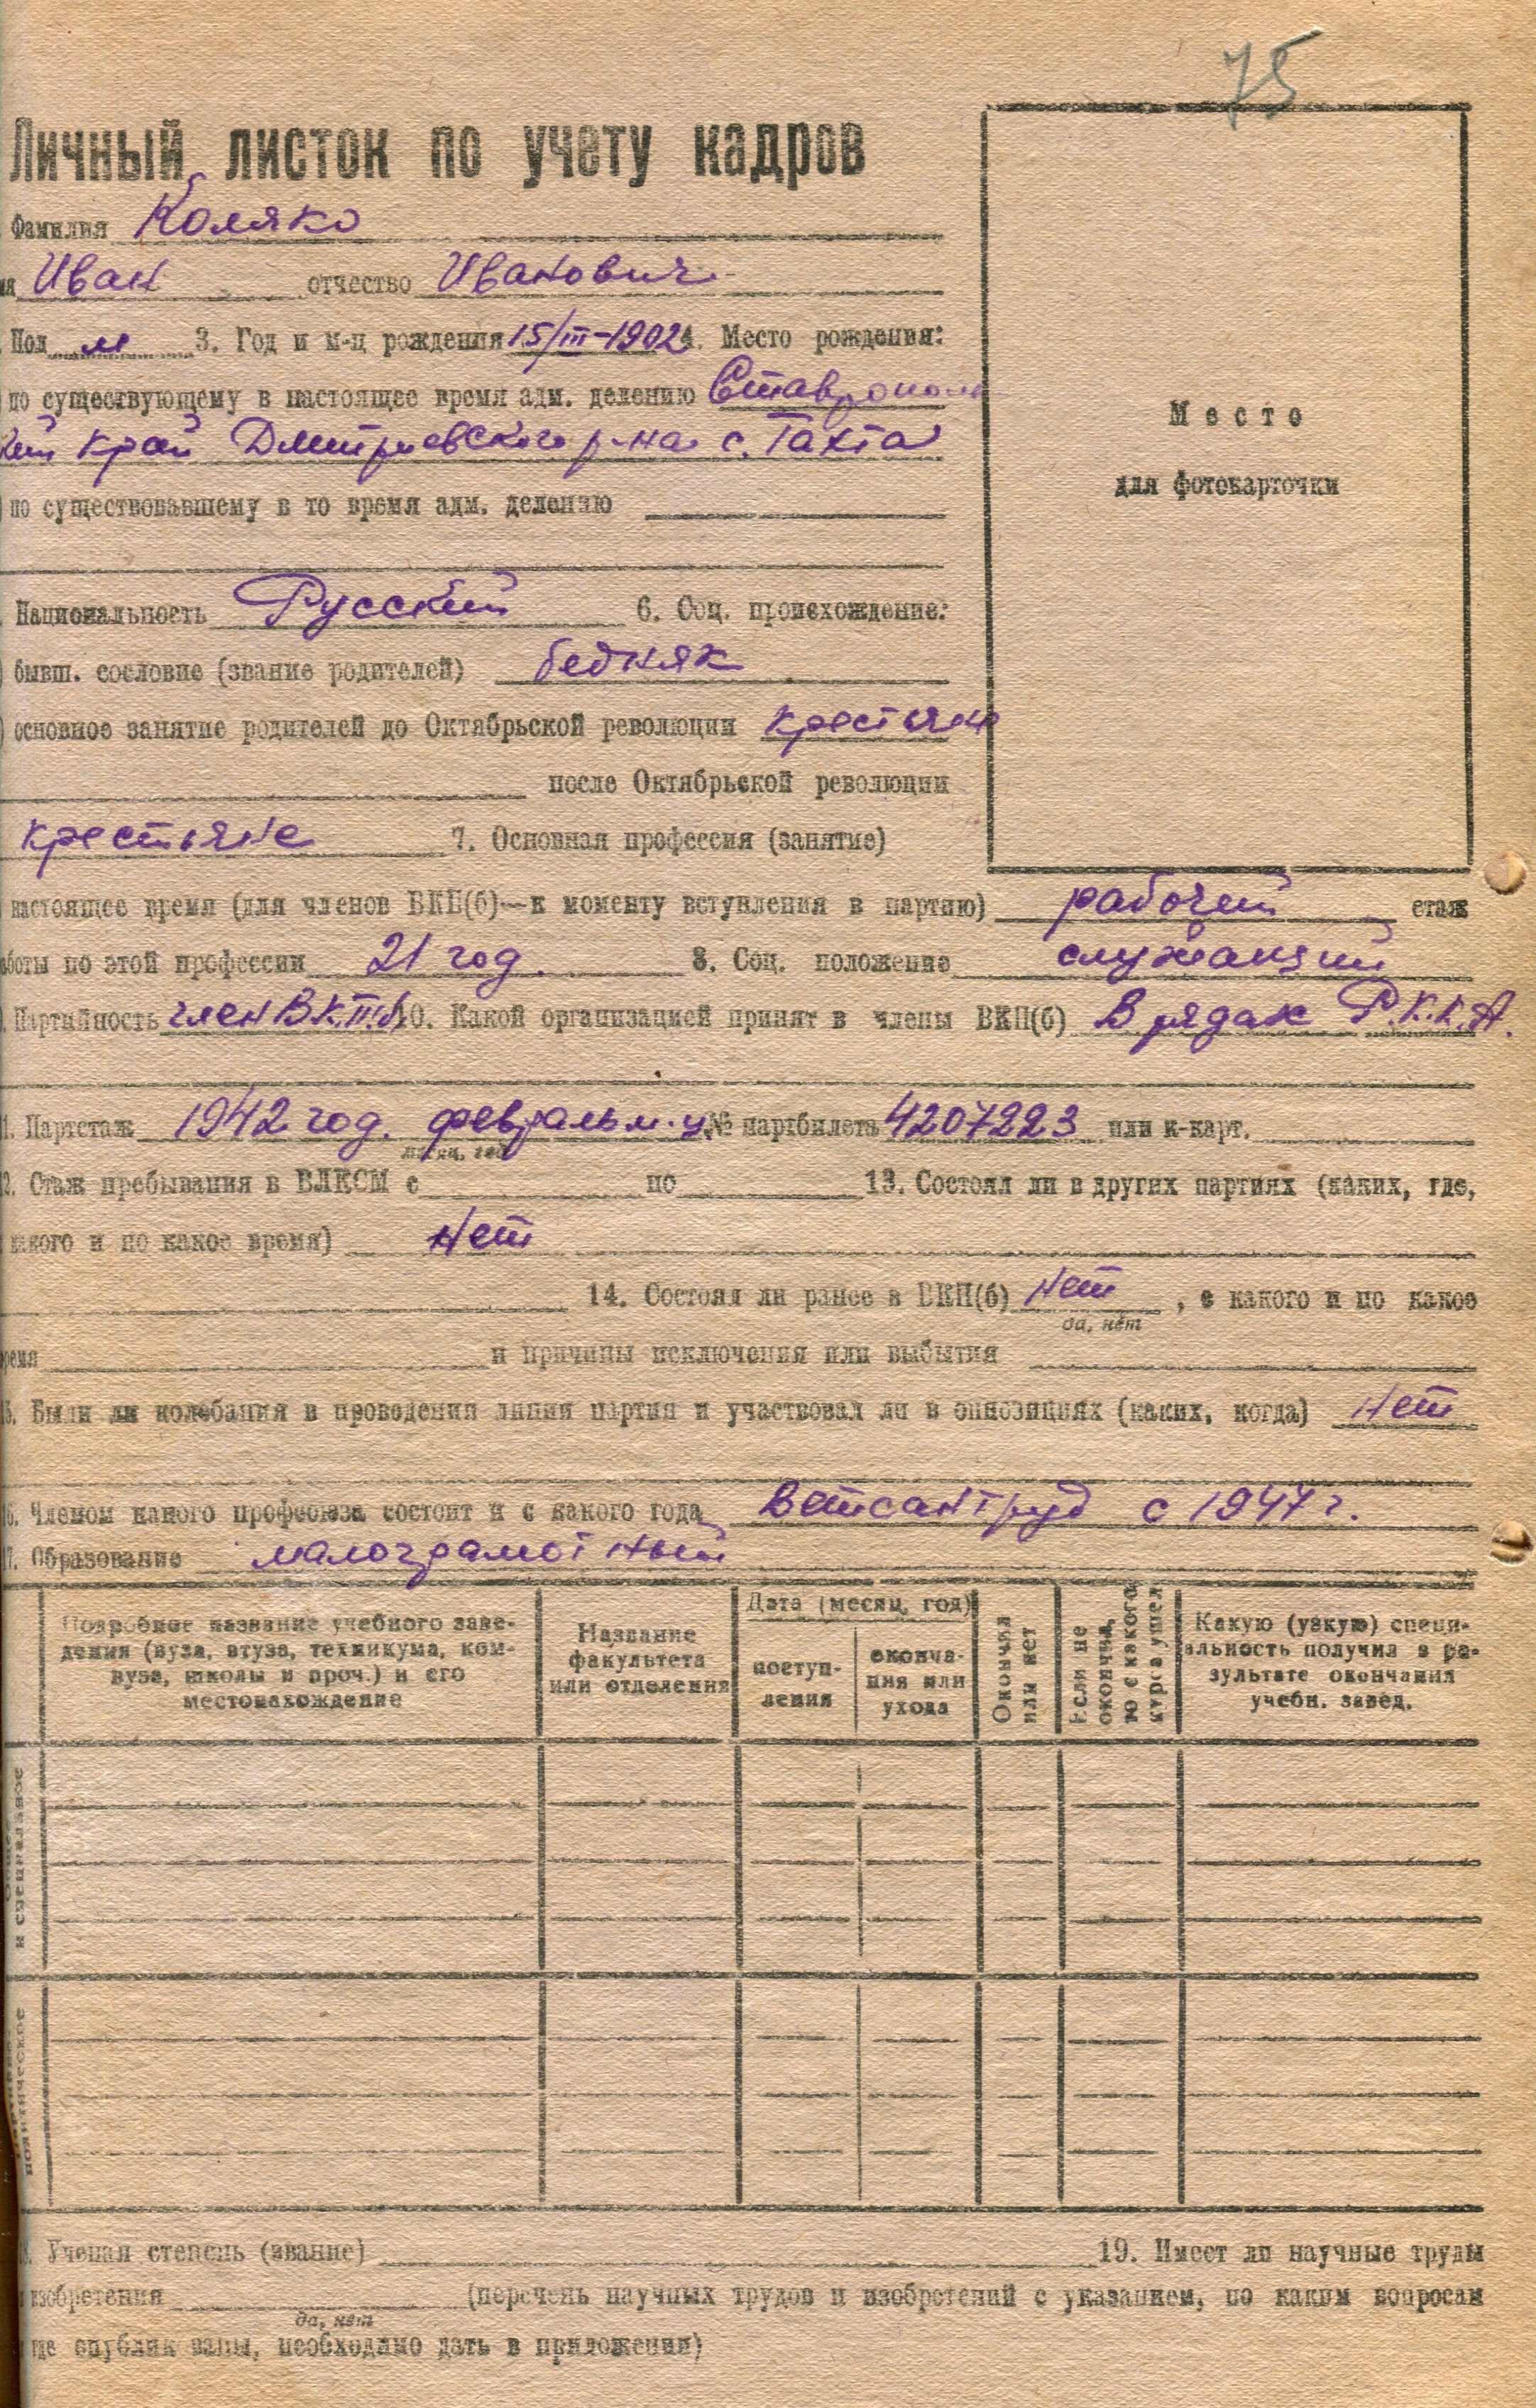 75
Личный листок по учету кадров
Фамилия Коляко
Иван отчество Иванович
Пол м 3. Год и м-ц рождения 15/III-1902 4. Место рождения:
по существующему в настоящее время адм. делению Ставрополь
кий край Дмитриевского р-на с. Тахта
по существовавшему в то время адм. делению
Место
для фотокарточки
Национальность Русский 6. Соц. происхождение:
бывш. сословие (звание родителей) бедняк
основное занятие родителей до Октябрьской революции крестьяне
после Октябрьской революции
крестьяне 7. Основная профессия (занятие)
настоящее время (для членов ВКП(б)—к моменту вступления в партию) рабочий стаж
боты по этой профессии 21 год. 8. Соц. положение служащий
Партийность член В.К.П.б. 10. Какой организацией принят в члены ВКП(б) В рядах Р.К.К.А.
1. Партстаж 1942 год. февраль м-ц. № партбилета 4207223 или к-карт.
месяц, год
2. Стаж пребывания в ВЛКСМ с по 13. Состоял ли в других партиях (каких, где,
какого и по какое время) Нет
14. Состоял ли ранее в ВКП(б) Нет , с какого и по какое
да, нет
ремя и причины исключения или выбытия
5. Были ли колебания в проведении линии партии и участвовал ли в оппозициях (каких, когда) Нет
6. Членом какого профсоюза состоит и с какого года Ветсантруд с 1947 г.
7. Образование малограмотный
Подробное название учебного заведения (вуза, втуза, техникума, комвуза, школы и проч.) и его местонахождение
Название факультета или отделения
Дата (месяц, год)
поступления
окончания или ухода
Окончил или нет
Если не окончил, то с какого курса ушел
Какую (узкую) специальность получил в результате окончания учебн. завед.
и специальное
политическое
Ученая степень (звание) 19. Имеет ли научные труды
изобретения (перечень научных трудов и изобретений с указанием, по каким вопросам
да, нет
где опублик ваны, необходимо дать в приложении)